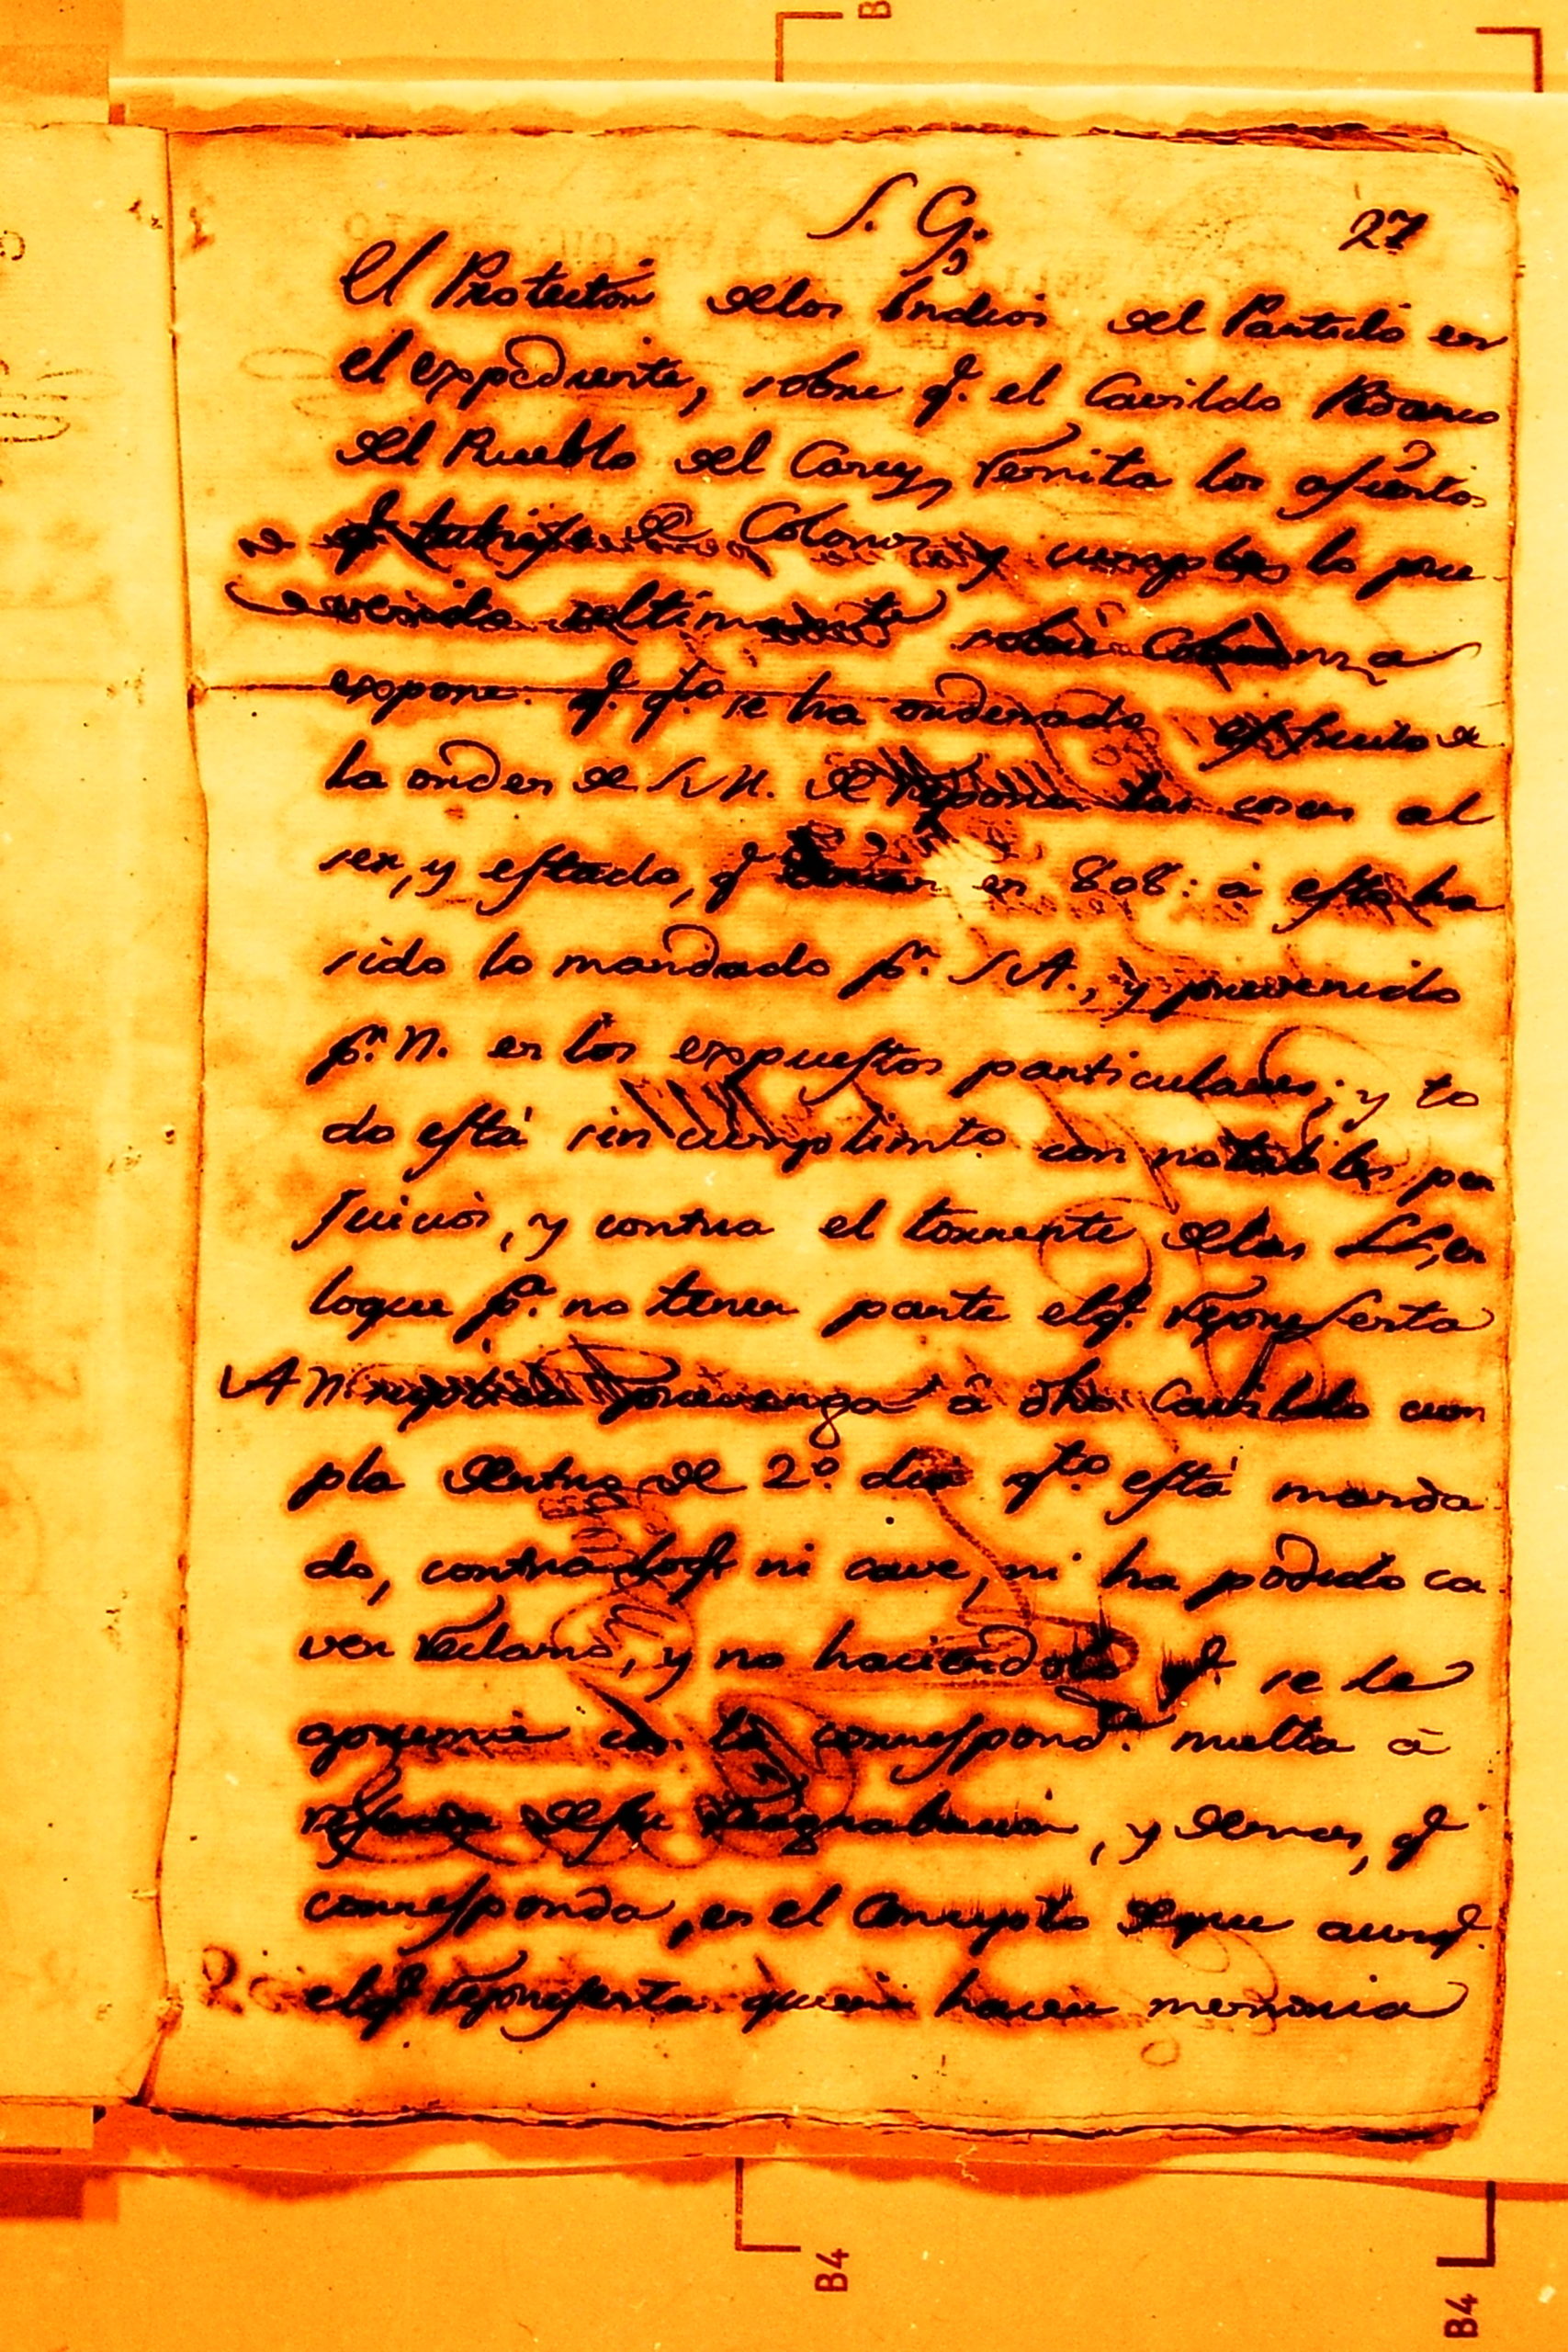 S. G.
27
El Protector delos Indios del Partido en
el expediente, sobre q.e el Cavildo Pedaneo
del Pueblo del Caney, remita los asientos
de Colonos y cumpla lo pre
venido ultimamente sobre
expone. q.e q.to se ha ordenado es fruto de
la orden de S.M. de reponer las cosas al
ser, y estado, q.e en 808: á esto ha
sido lo mandado p.r S.A., y prevenido
p.r N. en los expuestos particulares; y to
do está sin cumplim.to con notables per
juicios, y contra el torrente delas LL, en
loque p.r no tener parte elq.e representa
A N. suplica prevenga á dho Cavildo cum
pla dentro de 2.º dia q.to está manda
do, contra loq.e ni cave, ni ha podido ca
ver reclamo, y no haciendolo q.e se le
apremie con la correspond.te multa á
, y demas, q.e
corresponda, en el concepto deque aunq.e
elq.e representa quiera hacer memoria
B
B4
B4